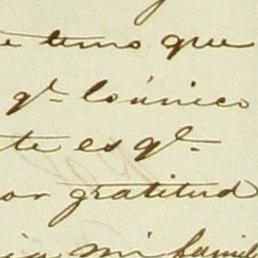 e temo que
q.e lo único
te es q.e
or gratitud
ia mi famil